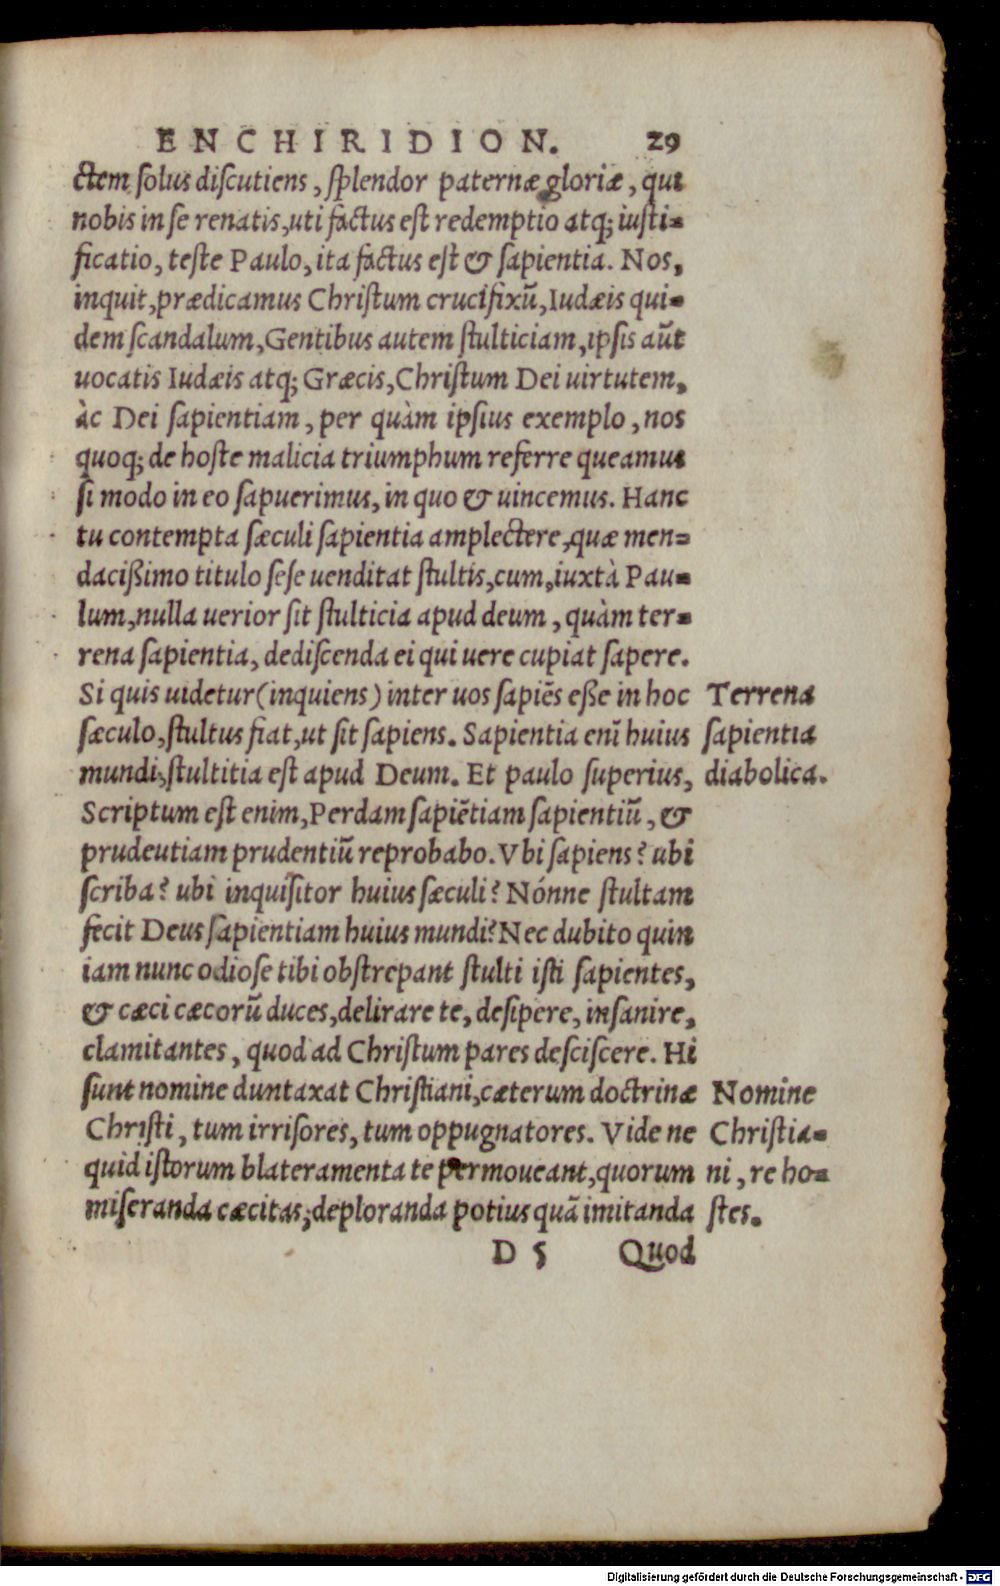 ENCHIRIDION. 29
ctem solus discutiens, splendor paternæ gloriæ, qui
nobis in se renatis, uti factus est redemptio atq; iusti-
ficatio, teste Paulo, ita factus est & sapientia. Nos,
inquit, prædicamus Christum crucifixũ, Iudæis qui-
dem scandalum, Gentibus autem stulticiam, ipsis aũt
uocatis Iudæis atq; Græcis, Christum Dei uirtutem,
àc Dei sapientiam, per quàm ipsius exemplo, nos
quoq; de hoste malicia triumphum referre queamus
si modo in eo sapuerimus, in quo & uincemus. Hanc
tu contempta sæculi sapientia amplectere, quæ men-
dacißimo titulo sese uenditat stultis, cum, iuxtà Pau-
lum, nulla uerior sit stulticia apud deum, quàm ter-
rena sapientia, dediscenda ei qui uere cupiat sapere.
Si quis uidetur (inquiens) inter uos sapiẽs eße in hoc
sæculo, stultus fiat, ut sit sapiens. Sapientia enĩ huius
mundi, stultitia est apud Deum. Et paulo superius,
Scriptum est enim, Perdam sapiẽtiam sapientiũ, &
prudeutiam prudentiũ reprobabo. Vbi sapiens? ubi
scriba? ubi inquisitor huius sæculi? Nónne stultam
fecit Deus sapientiam huius mundi? Nec dubito quin
iam nunc odiose tibi obstrepant stulti isti sapientes,
& cæci cæcorũ duces, delirare te, desipere, insanire,
clamitantes, quod ad Christum pares desciscere. Hi
sunt nomine duntaxat Christiani, cæterum doctrinæ
Christi, tum irrisores, tum oppugnatores. Vide ne
quid istorum blateramenta te permoueant, quorum
miseranda cæcitas; deploranda potius quã imitanda
D 5 Quod
Terrena
sapientia
diabolica.
Nomine
Christia-
ni, re ho-
stes.
Digitalisierung gefördert durch die Deutsche Forschungsgemeinschaft - DFG